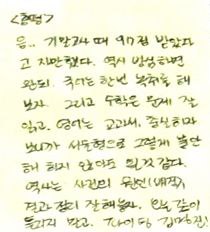 <총평>
음.. 기말고사 때 97점 받았다
고 자만했다. 역시 방심하면
안돼. 국어는 한번 복습을 해
보자. 그리고 수학은 문제 잘
읽고. 영어는 교과서 중심하자
보니까 서술형으로 그렇게 불안
해 하지 않아도 될것같다.
역사는 사건의 원인(배경)
결과 정리 잘해놓자.
들리지 말고. 화이팅